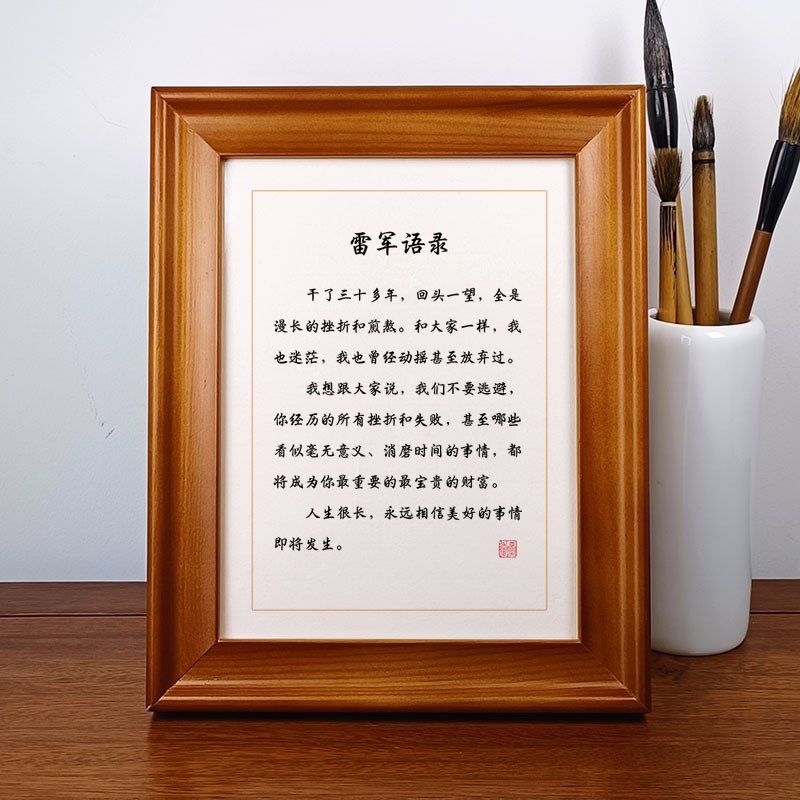 雷军语录
干了三十多年，回头一望，全是
漫长的挫折和煎熬。和大家一样，我
也迷茫，我也曾经动摇甚至放弃过。
我想跟大家说，我们不要逃避，
你经历的所有挫折和失败，甚至哪些
看似毫无意义、消磨时间的事情，都
将成为你最重要的最宝贵的财富。
人生很长，永远相信美好的事情
即将发生。